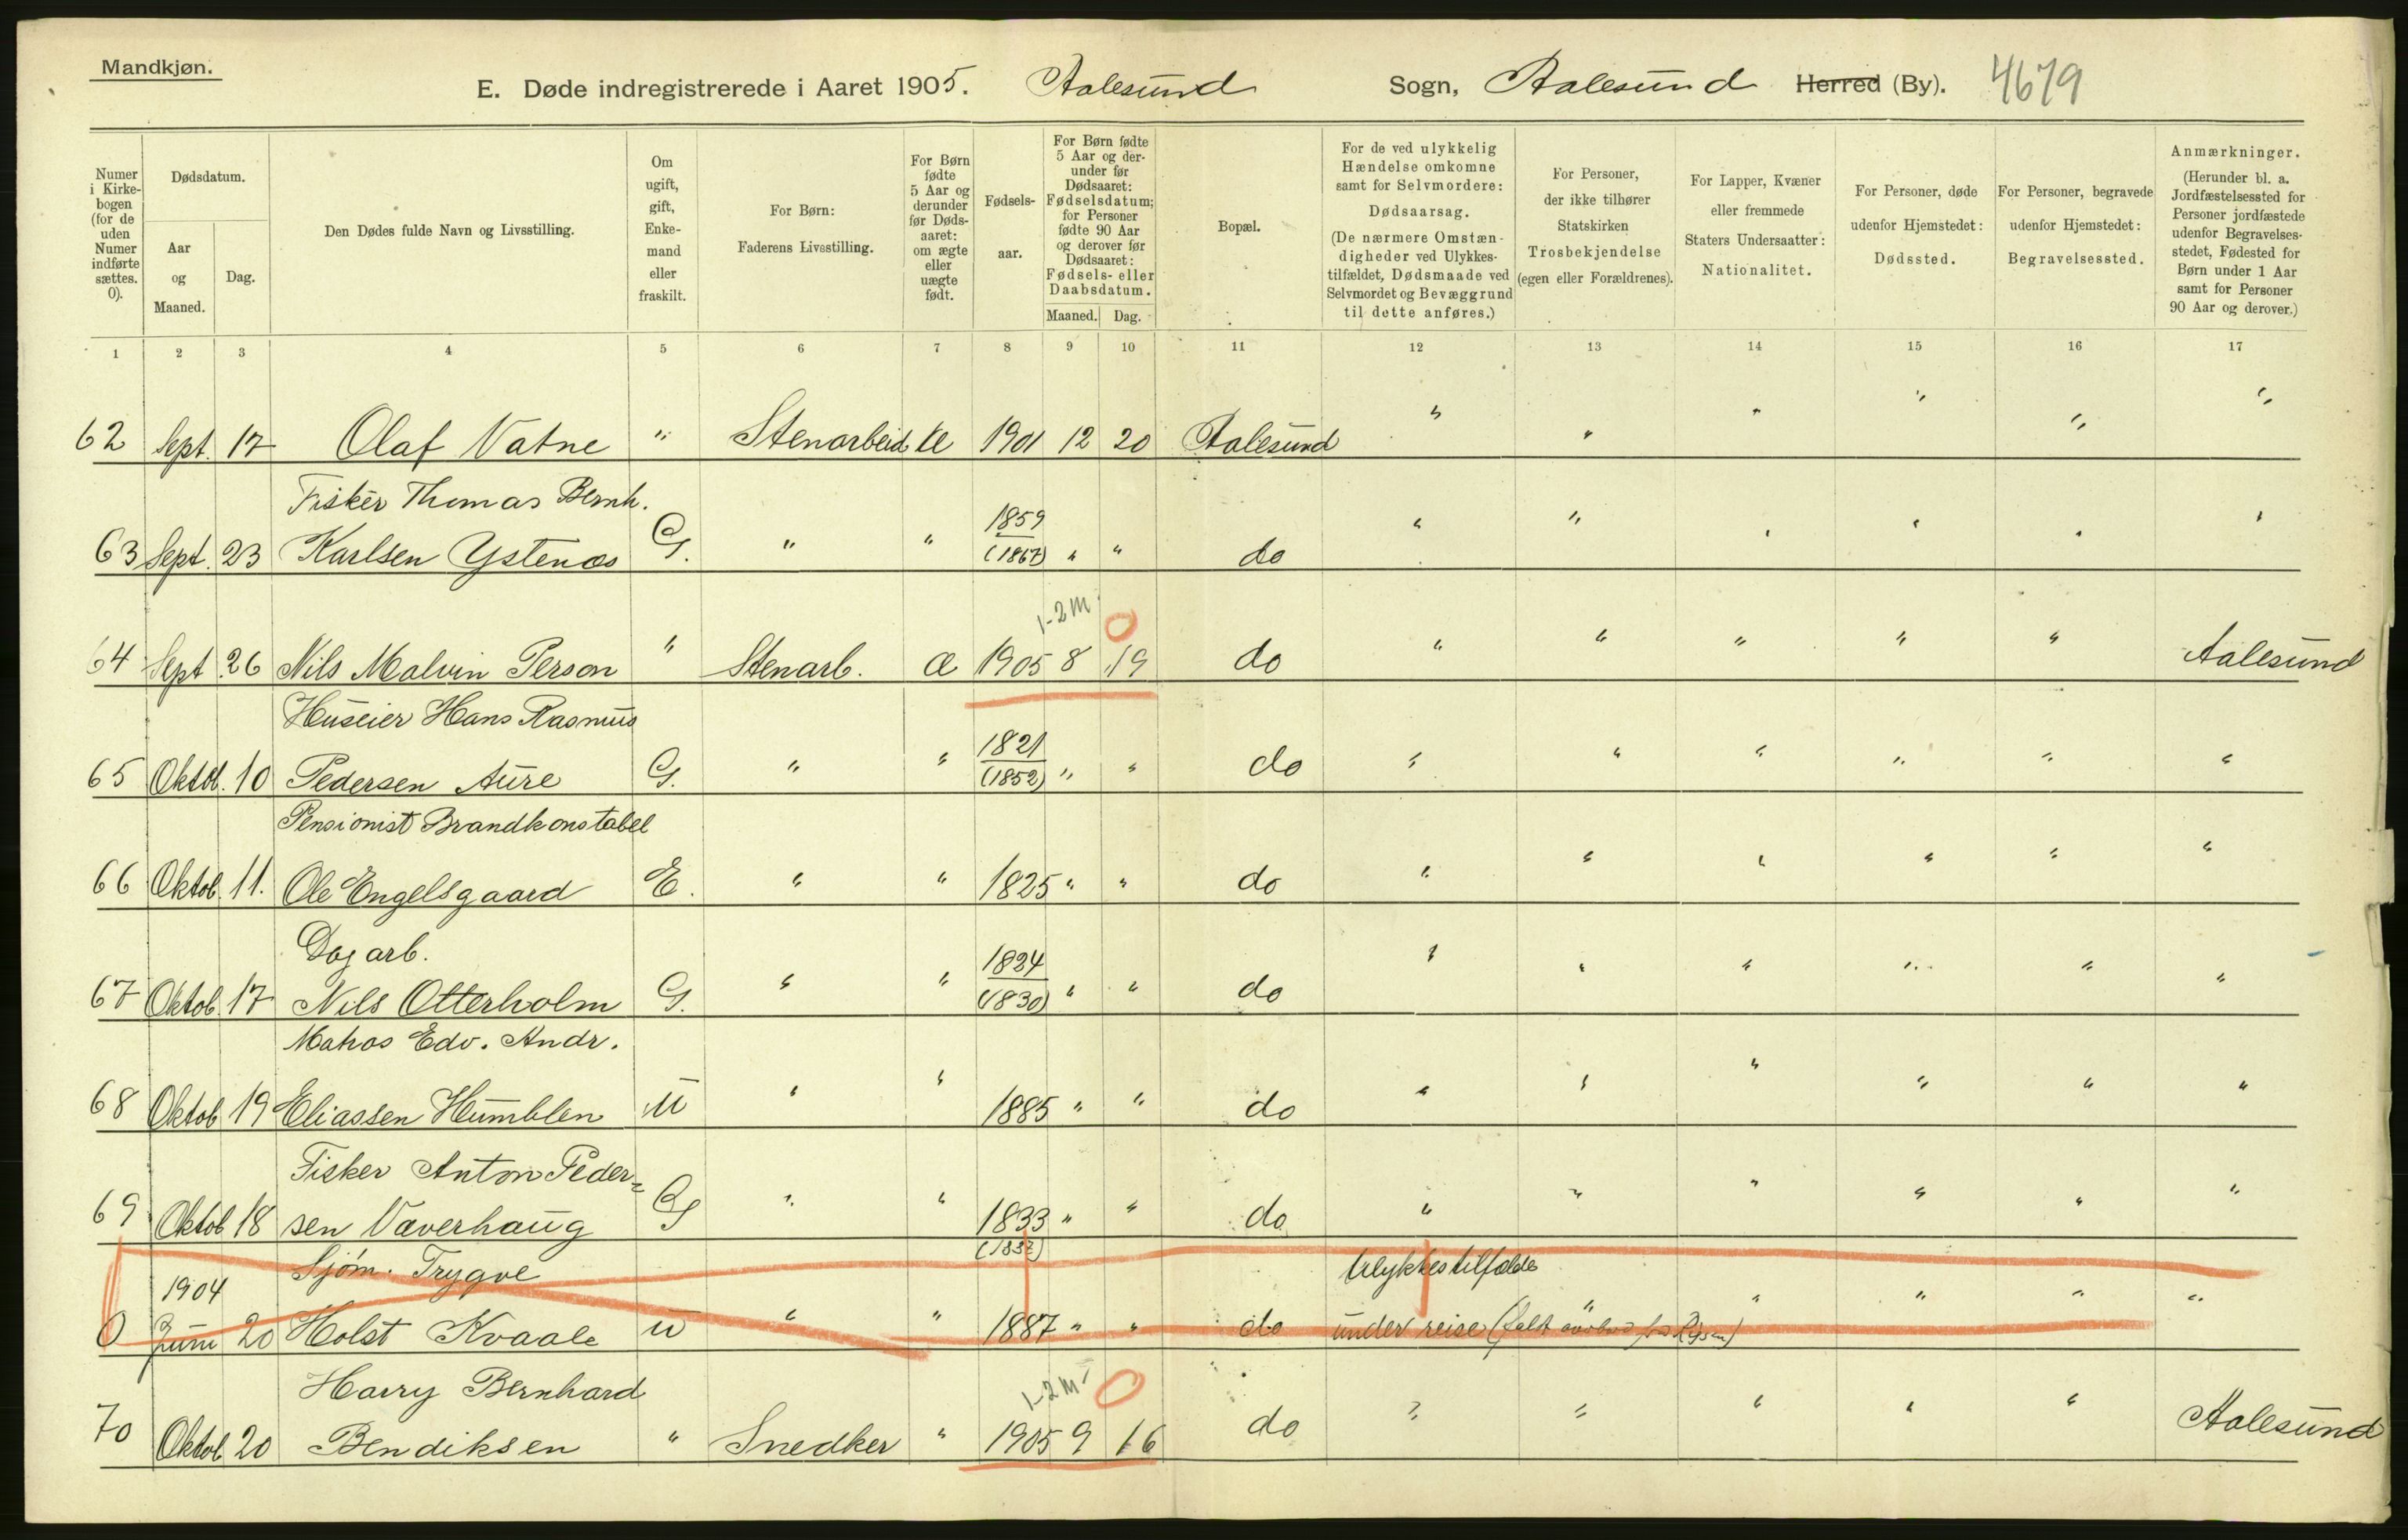 Mandkjøn.
E. Døde indregistrerede i Aaret 1905. Aalesund Sogn, Aalesund Herred (By). 4679
Numer i Kirkebogen (for de uden Numer indførte sættes. 0).
Dødsdatum.
Aar og Maaned.
Dag.
Den Dødes fulde Navn og Livsstilling.
Om ugift, gift, Enkemand eller fraskilt.
For Børn: Faderens Livsstilling.
For Børn fødte 5 Aar og derunder før Dødsaaret: om ægte eller uægte født.
Fødselsaar.
For Børn fødte 5 Aar og derunder før Dødsaaret: Fødselsdatum; for Personer fødte 90 Aar og derover før Dødsaaret: Fødsels- eller Daabsdatum.
Maaned. Dag.
Bopæl.
For de ved ulykkelig Hændelse omkomne samt for Selvmordere: Dødsaarsag. (De nærmere Omstændigheder ved Ulykkestilfældet, Dødsmaade ved Selvmordet og Bevæggrund til dette anføres.)
For Personer, der ikke tilhører Statskirken Trosbekjendelse (egen eller Forældrenes).
For Lapper, Kvæner eller fremmede Staters Undersaatter: Nationalitet.
For Personer, døde udenfor Hjemstedet: Dødssted.
For Personer, begravede udenfor Hjemstedet: Begravelsessted.
Anmærkninger. (Herunder bl. a. Jordfæstelsessted for Personer jordfæstede udenfor Begravelsesstedet, Fødested for Børn under 1 Aar samt for Personer 90 Aar og derover.)
1 2 3 4 5 6 7 8 9 10 11 12 13 14 15 16 17
62 Sept. 17 Olaf Vatne " Stenarbeid Æ 1901 12 20 Aalesund " " " " " "
Fisker Thomas Bernh. 1859
63 Sept. 23 Karlsen Ystenæs G. " " (1867) " " do " " " " " "
1-2 m. 0
64 Sept 26 Nils Malvin Person " Stenarb. Æ 1905 8 19 do " " " " " Aalesund
Huseier Hans Rasmus 1821
65 Oktob. 10 Pedersen Aure G. " " (1852) " " do " " " " " "
Pensionist Brandkonstabel
66 Oktob. 11. Ole Engelsgaard E. " " 1825 " " do " " " " " "
Dagarb. 1824
67 Oktob. 17 Nils Otterholm G. " " (1830) " " do " " " " " "
Matros Edv. Andr.
68 Oktob 19 Eliassen Humblen U " " 1885 " " do " " " " " "
Fisker Anton Peder=
69 Oktob 18 sen Væverhaug G " " 1833 " " do " " " " " "
1904 Sjøm. Trygve Ulykkestilfælde
0 Juni 20 Holst Kvaale U " " 1887 " " do under reise " " " " "
Harry Bernhard 1-2 m 0
70 Oktob 20 Bendiksen " Snedker " 1905 9 16 do " " " " " Aalesund